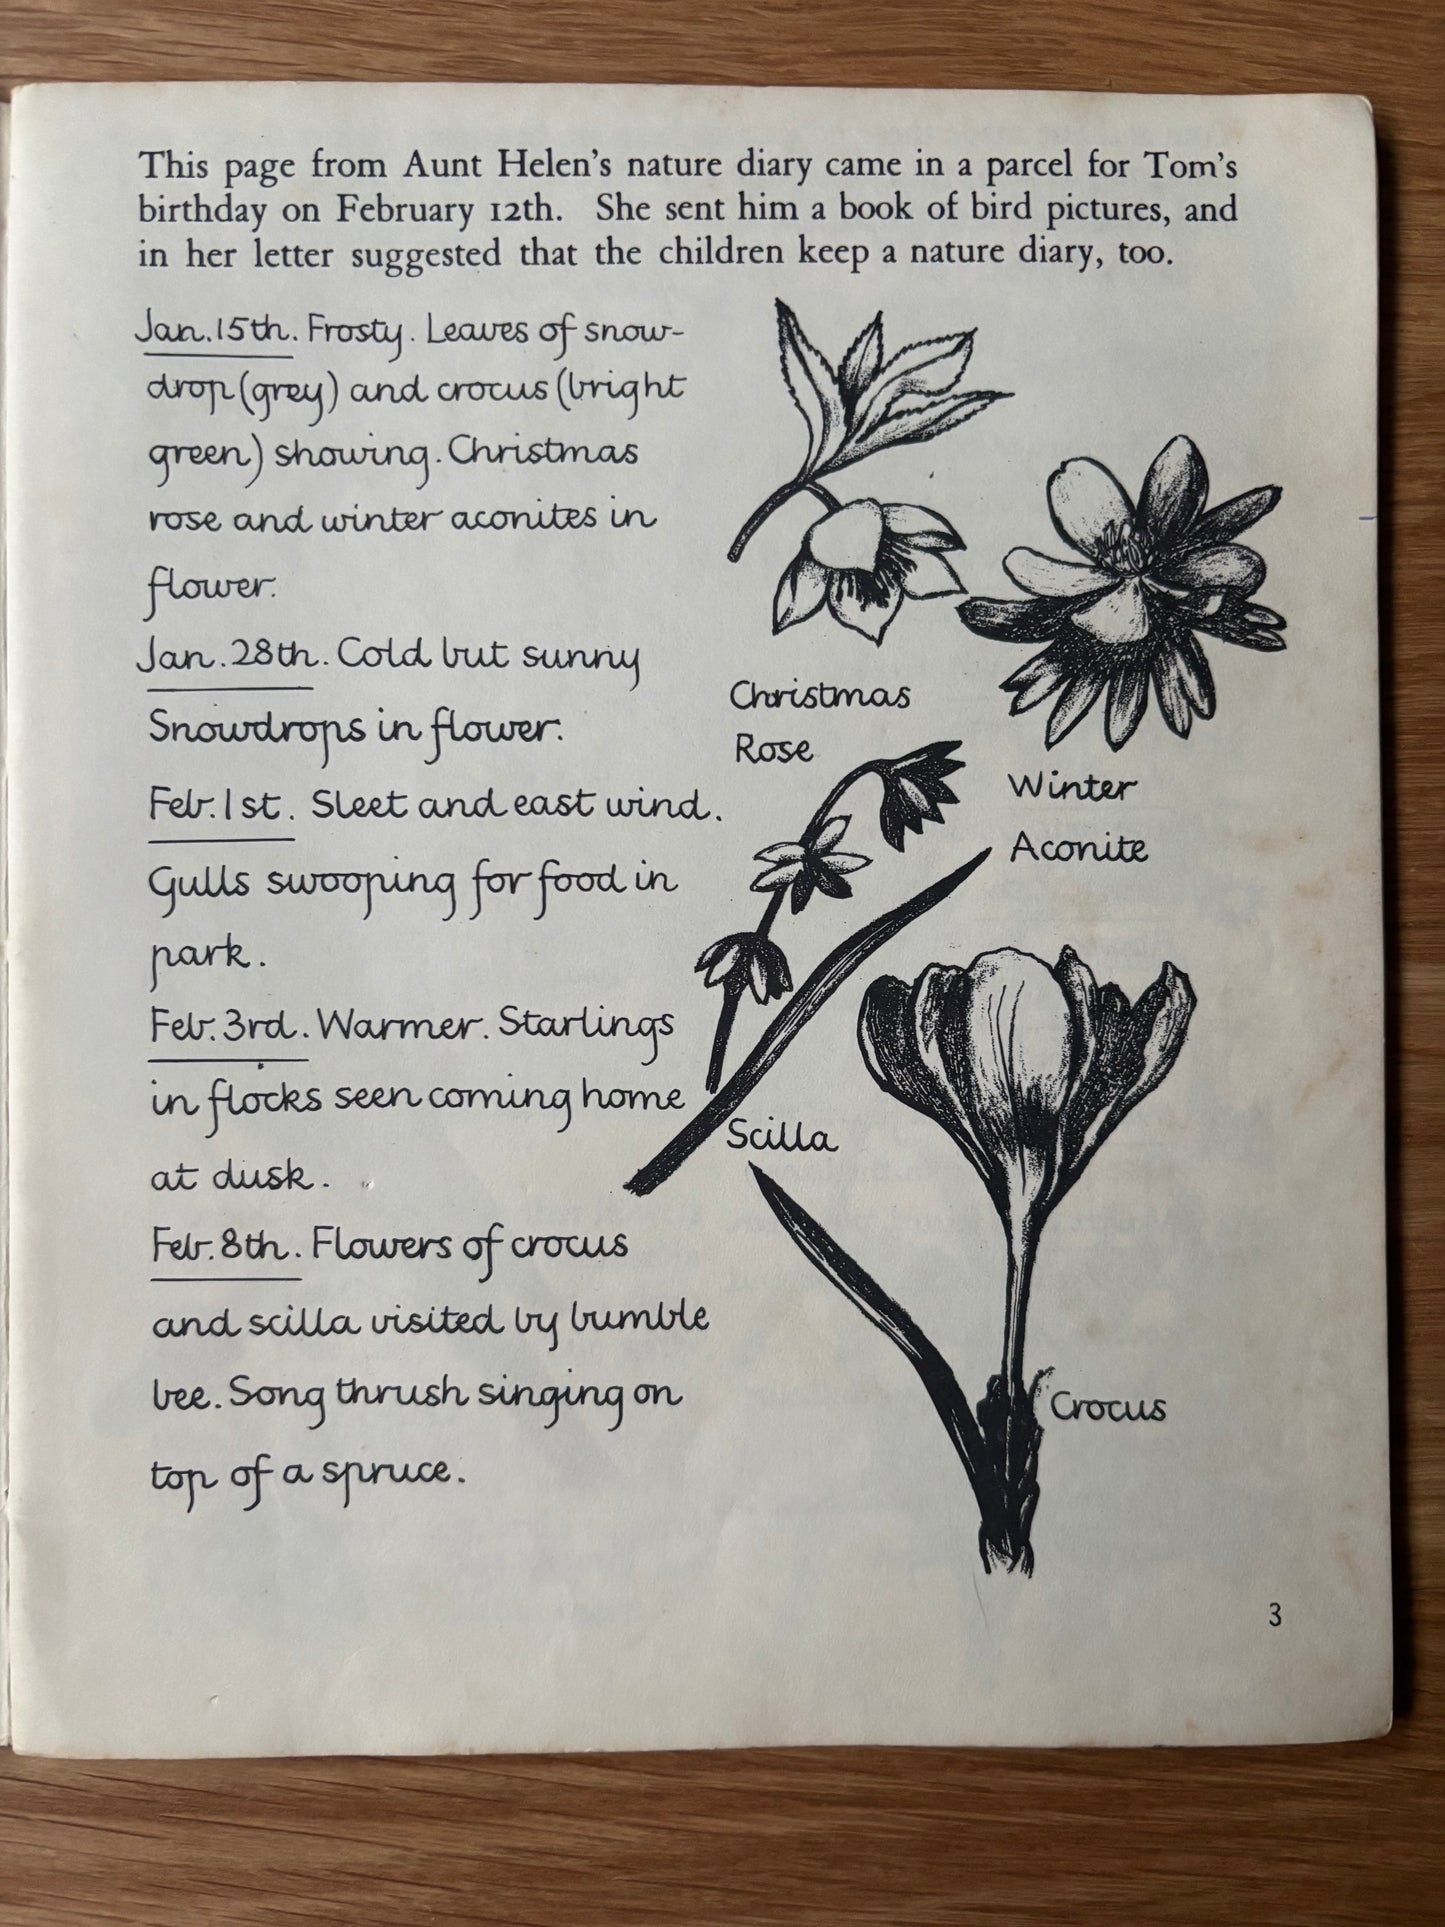 This page from Aunt Helen's nature diary came in a parcel for Tom's
birthday on February 12th. She sent him a book of bird pictures, and
in her letter suggested that the children keep a nature diary, too.
Jan. 15th. Frosty. Leaves of snow-
drop (grey) and crocus (bright
green) showing. Christmas
rose and winter aconites in
flower.
Jan. 28th. Cold but sunny
Snowdrops in flower.
Feb. 1st. Sleet and east wind.
Gulls swooping for food in
park.
Feb. 3rd. Warmer. Starlings
in flocks seen coming home
at dusk.
Feb. 8th. Flowers of crocus
and scilla visited by bumble
bee. Song thrush singing on
top of a spruce.
Christmas
Rose
Winter
Aconite
Scilla
Crocus
3